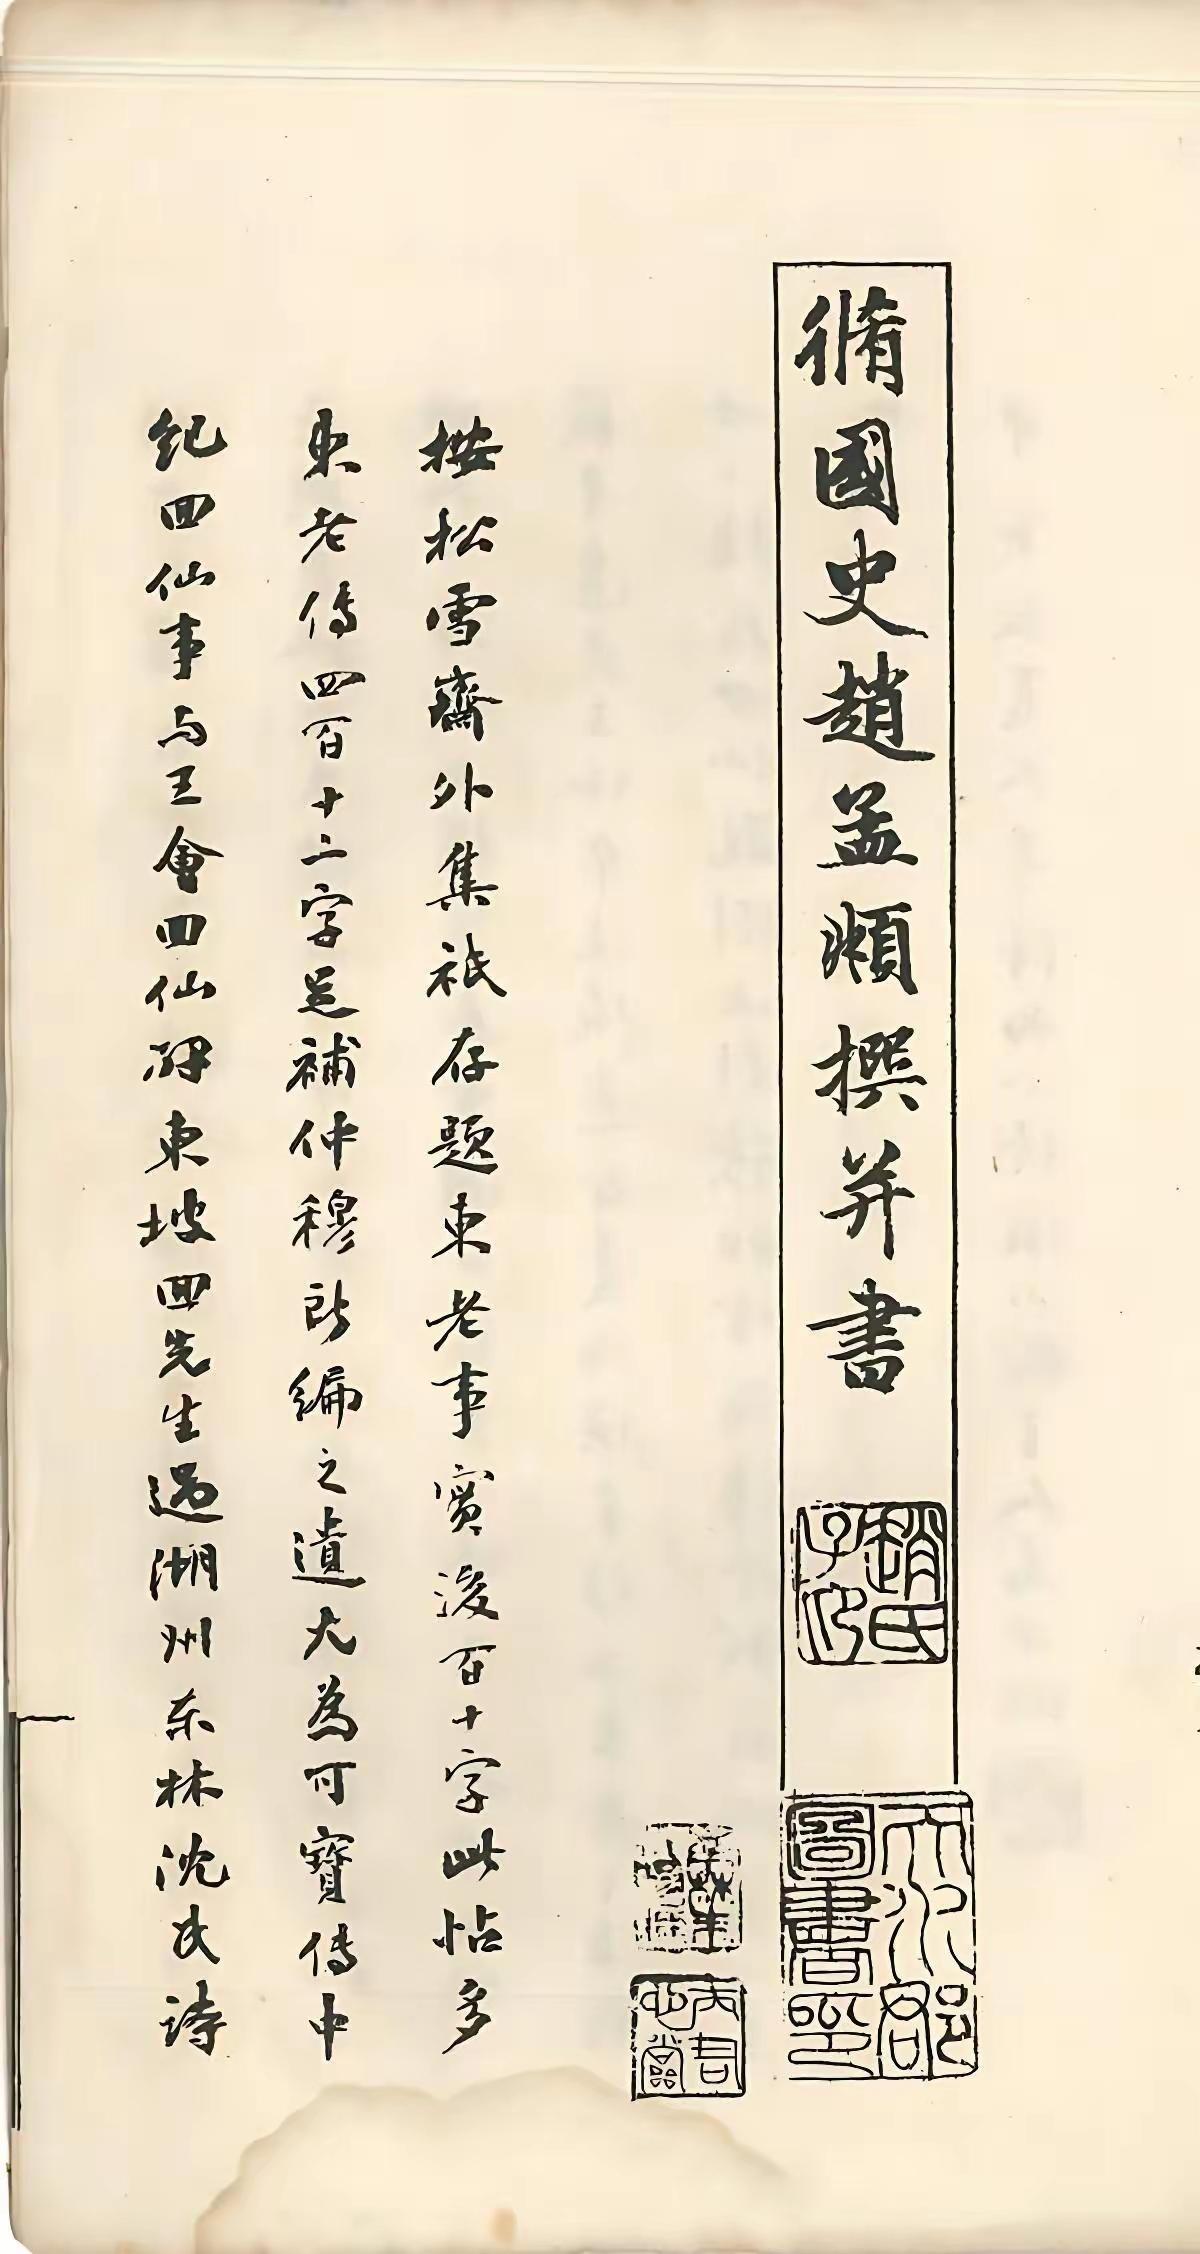 脩國史趙孟頫撰并書
趙氏子昂
天水郡圖書印
按松雪齋外集祇存題東老事實後百十字此帖多
東老傳四百十二字足補仲穆所編之遺尤為可寶傳中
紀回仙事与王會回仙碑東坡回先生過湖州东林沈氏詩